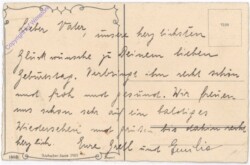 Lieber Vater,
unsere herzlichsten
Glückwünsche zu Deinem lieben
Geburtstag. Verbringe ihn recht schön
und froh und gesund. Wir freuen
uns schon sehr auf ein baldiges
Wiedersehen und
herzlich Eure Gretl und Familie